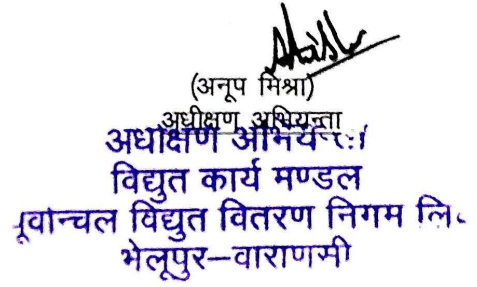 (अनूप मिश्रा)
अधीक्षण अभियन्ता
अधीक्षण अभियन्ता
विद्युत कार्य मण्डल
पूर्वान्चल विद्युत वितरण निगम लि.
भेलूपुर–वाराणसी